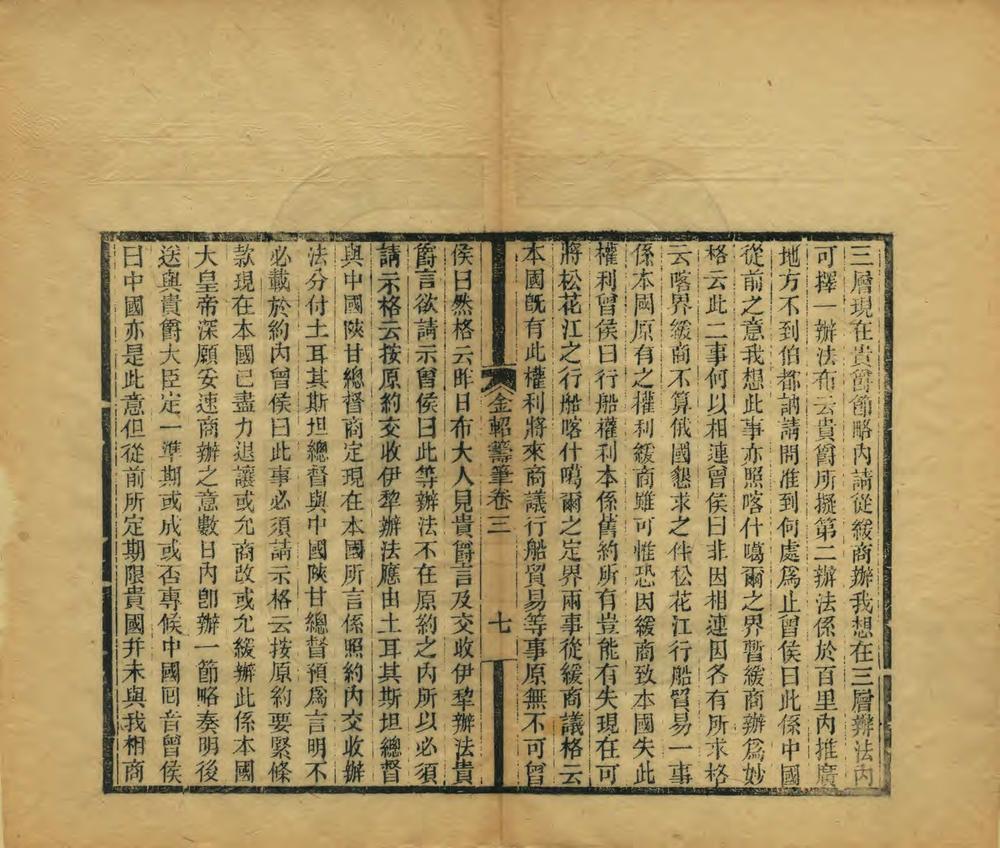 三層現在貴爵節略內請從緩商辦我想在三層辦法內
可擇一辦法布云貴爵所擬第二辦法係於百里內推廣
地方不到伯都訥請開准到何處爲止曾侯曰此係中國
從前之意我想此事亦照喀什噶爾之界暫緩商辦爲妙
格云此二事何以相連曾侯曰非因相連因各有所求格
云喀界緩商不算俄國懇求之件松花江行船貿易一事
係本國原有之權利緩商雖可惟恐因緩商致本國失此
權利曾侯曰行船權利本係舊約所有豈能有失現在可
將松花江之行船喀什噶爾之定界兩事從緩商議格云
本國旣有此權利將來商議行船貿易等事原無不可曾
金軺籌筆卷三 七
侯曰然格云昨日布大人見貴爵言及交收伊犂辦法貴
爵言欲請示曾侯曰此等辦法不在原約之內所以必須
請示格云按原約交收伊犂辦法應由土耳其斯坦總督
與中國陝甘總督商定現在本國所言係照約內交收辦
法分付土耳其斯坦總督與中國陝甘總督預爲言明不
必載於約內曾侯曰此事必須請示格云按原約要緊條
款現在本國已盡力退讓或允商改或允緩辦此係本國
大皇帝深願妥速商辦之意數日內卽辦一節略奏明後
送與貴爵大臣定一準期或成或否專候中國囘音曾侯
曰中國亦是此意但從前所定期限貴國幷未與我相商